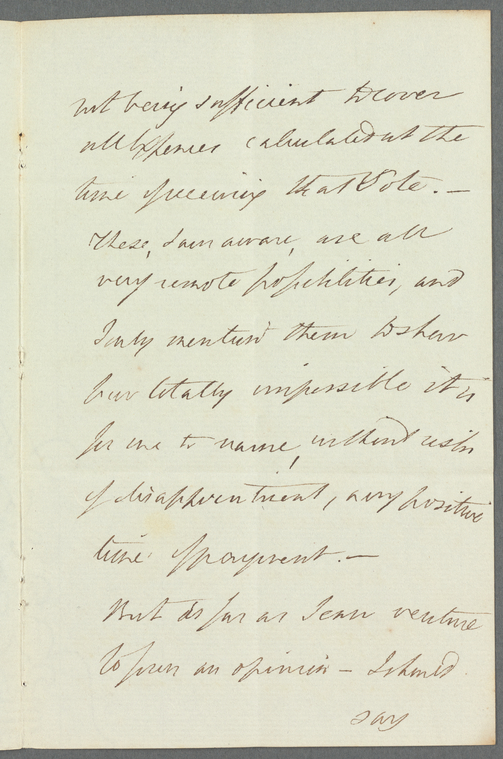 not being sufficient to cover
all Expences calculated at the
time of receiving that Vote. —
These, I am aware, are all
very remote possibilities, and
I only mention'd them to shew
how totally impossible it is
for me to name, without risk
of disappointment, any positive
time of payment. —
But as far as I can venture
to form an opinion — I should
say